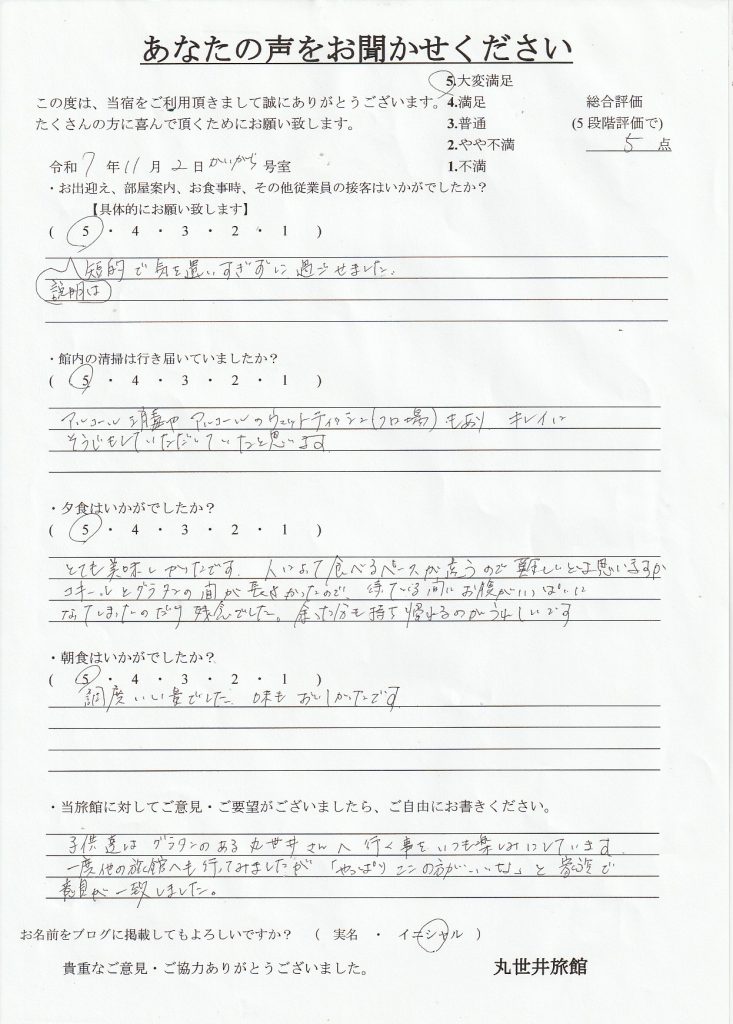 あなたの声をお聞かせください
この度は、当宿をご利用頂きまして誠にありがとうございます。
たくさんの方に喜んで頂くためにお願い致します。
5.大変満足
4.満足
3.普通
2.やや不満
1.不満
総合評価
(5段階評価で)
5 点
令和 7 年 11 月 2 日 かいがら 号室
・お出迎え、部屋案内、お食事時、その他従業員の接客はいかがでしたか？
【具体的にお願い致します】
( 5 ・ 4 ・ 3 ・ 2 ・ 1 )
短的で気を遣いすぎずに過ごせました。
説明は
・館内の清掃は行き届いていましたか？
( 5 ・ 4 ・ 3 ・ 2 ・ 1 )
アルコール消毒や アルコールのウェットティッシュ(フロ場)もあり キレイに
そうじもしていただいていたと思います
・夕食はいかがでしたか？
( 5 ・ 4 ・ 3 ・ 2 ・ 1 )
とても美味しかったです。人によって食べるペースが違うので難しいとは思いますが
コキールとグラタンの間が長よかったので、待っている間にお腹がいっぱいに
なってしまったのだけ残念でした。余った分も持ち帰れるのがうれしいです
・朝食はいかがでしたか？
( 5 ・ 4 ・ 3 ・ 2 ・ 1 )
調度いい量でした 味もおいしかったです
・当旅館に対してご意見・ご要望がございましたら、ご自由にお書きください。
子供達はグラタンのある丸世井さんへ行く事をいつも楽しみにしています。
一度他の旅館へも行ってみましたが「やっぱりここの方がいいな」と家族で
意見が一致しました。
お名前をブログに掲載してもよろしいですか？ ( 実名 ・ イニシャル )
貴重なご意見・ご協力ありがとうございました。
丸世井旅館